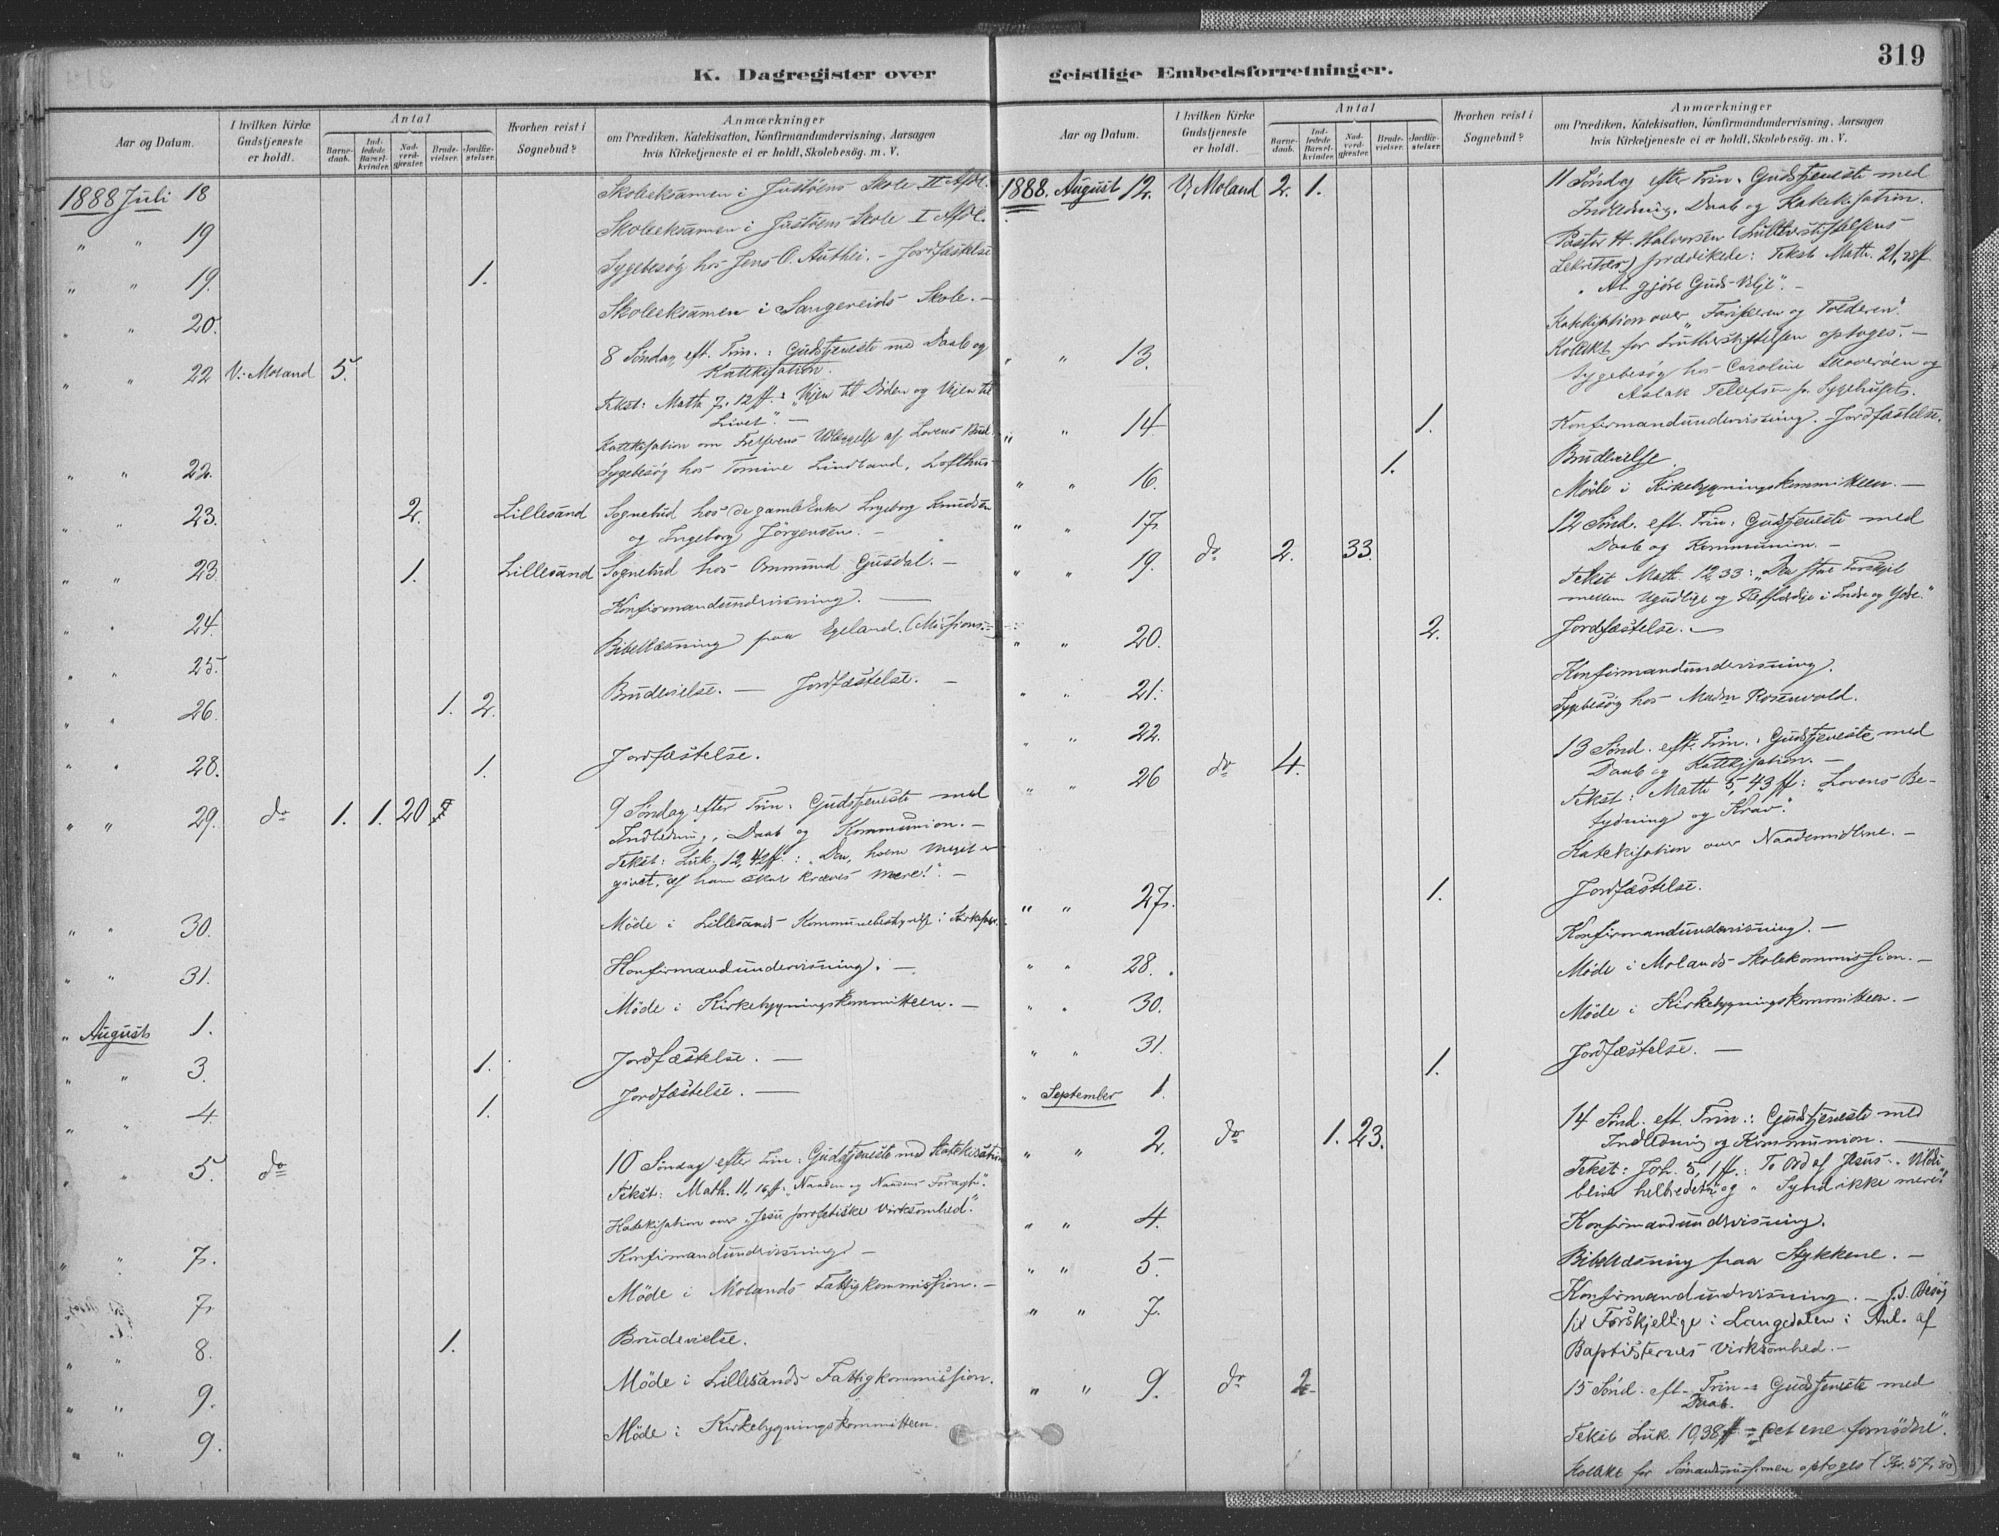 319
K. Dagregister over geistlige Embedsforretninger.
Aar og Datum.
I hvilken Kirke Gudstjeneste er holdt.
Antal
Barne-daab.
Ind-ledede Barsel-kvinder.
Nad-verd-gjester.
Brude-vielser.
Jordfæ-stelser.
Hvorhen reist i Sognebud?
Anmærkninger
om Prædiken, Katekisation, Konfirmandundervisning, Aarsagen
hvis Kirketjeneste ei er holdt, Skolebesög. m. V.
1888 Juli 18 Skoleeksamen i Justøens Skole II Afdl.
" " 19 Skoleeksamen i Justøens Skole I Afdl.
" " 19. 1. Sygebesøg hos Jens O. - Jordfæstelse
" " 20. Skoleeksamen i Sangereids Skole. -
" " 22 V. Moland 5. 8 Søndag eft. Trin.: Gudstjeneste med Daab og
Katekisation.
Tekst: Matth 7, 12 ff.: "Vejen til Døden og Vejen til
Livet". -
Katekisation om Frelserens Udlæggelse af Lovens Bud.
" " 22. Sygebesøg hos Tomine Lindland, Lofthus
" " 23. 2. Lillesand Sognebud hos de gamle Enker Ingeborg Knudsen
og Ingeborg Jörgensen. -
" " 23. 1. Lillesand Sognebud hos Ommund Gusdal. -
" " 24. Konfirmandundervisning. -
" " 25. Bibellæsning paa Egeland. (Missions-)
" " 26. 1. 2. Brudevielse. - Jordfæstelse. -
" " 28. 1. Jordfæstelse.
" " 29. do 1. 1. 20 9 Søndag efter Trin: Gudstjeneste med
Indledning, Daab og Kommunion. -
Tekst: Luk. 12, 42 ff.: "Den, hvem Meget er
givet, af ham skal kræves mere!". -
" " 30. Møde i Lillesands Kommunebestyrelse i
" " 31. Konfirmandundervisning. -
" August 1. Møde i Kirkebygningskommitteen. -
" " 3. 1. Jordfæstelse. -
" " 4. 1. Jordfæstelse. -
" " 5. do 10 Søndag efter Trin: Gudstjeneste med Katekisation
Tekst: Math. 11, 16 ff: "Naaden og Naadens Foragt".
Katekisation over "Jesu profetiske Virksomhed".
" " 7. Konfirmandundervisning -
" " 7. Møde i Molands Fattigkommission. -
" " 8. 1. Brudevielse.
" " 9. Møde i Lillesands Fattigkommission.
" " 9. Møde i Kirkebygningskommitteen.
Aar og Datum.
I hvilken Kirke Gudstjeneste er holdt.
Antal
Barne-daab.
Ind-ledede Barsel-kvinder.
Nad-verd-gjester.
Brude-vielser.
Jordfæ-stelser.
Hvorhen reist i Sognebud?
Anmærkninger
om Prædiken, Katekisation, Konfirmandundervisning, Aarsagen
hvis Kirketjeneste ei er holdt, Skolebesög. m. V.
1888. August 12. V. Moland 2. 1. 11 Søndag efter Trin. Gudstjeneste med
Indledning, Daab og Katekisation.
Pastor H. Halvorsen (Lutherstiftelsens
Sekretær) prædikede: Tekst Matth. 21, 28 ff.
"At gjøre Guds Vilje". -
Katekisation over "Farisæeren og Tolderen".
Kollekt for Lutherstiftelsen optoges. -
" " 13. Sygebesøg hos Caroline og
Aslak Tellefsen
" " 14 1. Konfirmandundervisning. Jordfæstelse.
" " 16. 1. Brudevielse.
" " 17. Møde i Kirkebygningskommitteen. -
" " 19. do 2. 33. 12 Sønd. eft. Trin: Gudstjeneste med
Daab og Kommunion. -
Tekst Matth. 12, 33: "Den store Forskjel
mellem Ugudlige og Retfærdige i Indre og Ydre."
" " 20. 2. Jordfæstelse. -
" " 21. Konfirmandundervisning.
" " 22. Sygebesøg hos Madm Rosenvold.
" " 26 do 4. 13 Sønd. eft. Trin.: Gudstjeneste med
Daab og Katekisation. -
Tekst: Matth 5, 43 ff: "Lovens Be-
tydning og Krav".
Katekisation over Naademidlerne. -
" " 27. 1. Jordfæstelse.
" " 28. Konfirmandundervisning. -
" " 30. Møde i Molands Skolekommission. -
" " 31. Møde i Kirkebygningskommitteen. -
" September 1. 1. Jordfæstelse. -
" " 2. do 1. 23. 14 Sønd. eft. Trin.: Gudstjeneste med
Indledning og Kommunion. -
Tekst: Joh. 5, 1 ff.: To Ord af Jesus: "Vil Du
blive helbredet" og "Synd ikke mere!"
" " 4. Konfirmandundervisning.
" " 5. Bibellæsning paa Stykkene. -
" " 7. Konfirmandundervisning. - Besøg
til Forskjellige i Langedalen i Anl. af
Baptisternes Virksomhed. -
" " 9. do 2 15 Sønd. eft. Trin: Gudstjeneste med
Daab.
Tekst Luk. 10, 38 ff = "Det ene fornødne".
Kollekt for Sømandsmissionen optoges (Kr. 57, 80)